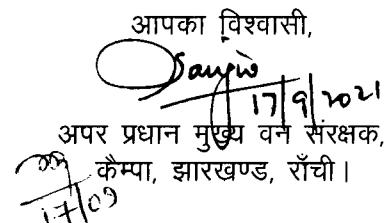 आपका विश्वासी,
Sanjiv
17/9/2021
अपर प्रधान मुख्य वन संरक्षक,
कैम्पा, झारखण्ड, राँची।
17/09